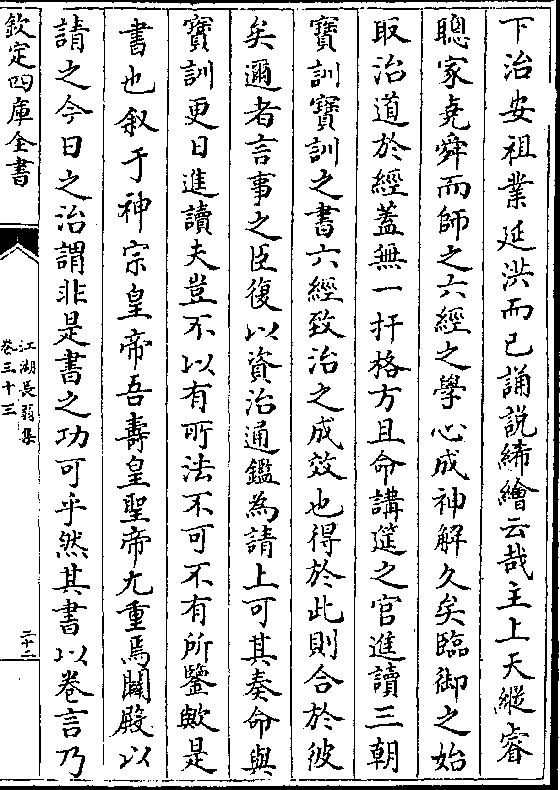 下治安祖業延洪而已誦說絺繪云哉主上天縱睿
聰家堯舜而師之六經之學心成神解久矣臨御之始
取治道於經蓋無一扞格方且命講筵之官進讀三朝
寶訓寶訓之書六經致治之成效也得於此則合於彼
矣邇者言事之臣復以資治通鑑為請上可其奏命與
寶訓更日進讀夫豈不以有所法不可不有所鑒歟是
書也叙于神宗皇帝吾壽皇聖帝九重焉闢殿以
請之今日之治謂非是書之功可乎然其書以卷言乃
欽定四庫全書
江湖長翁集
卷三十三
二十二